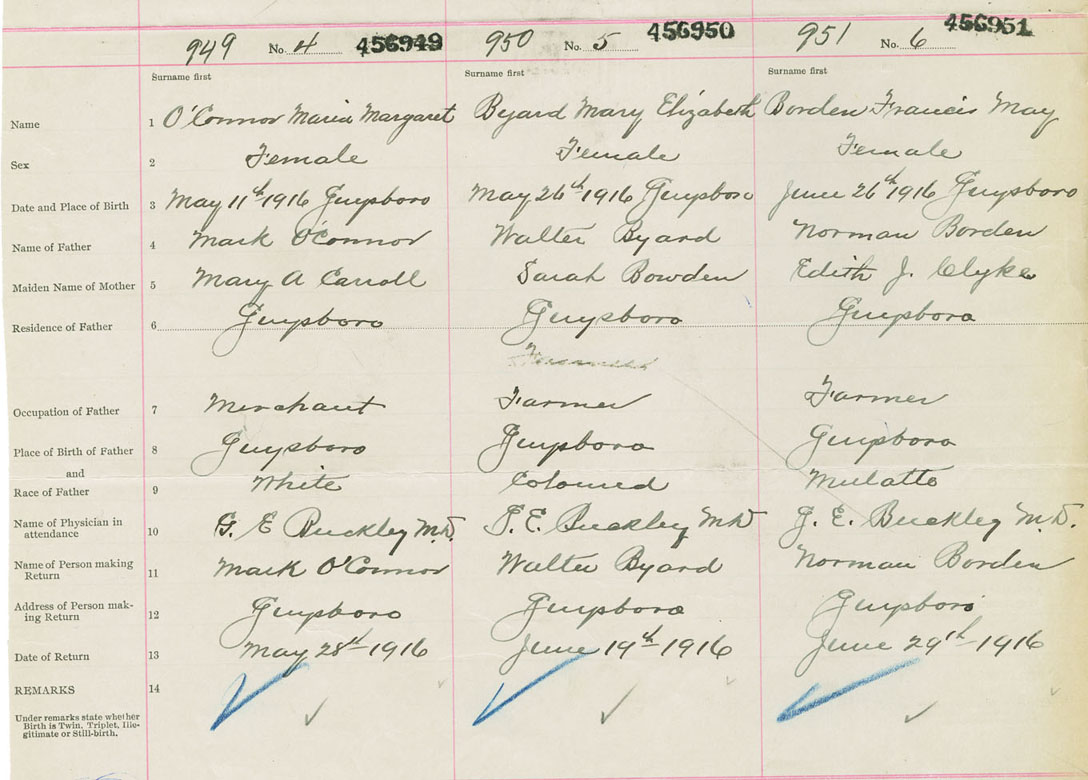 949 No. 4 456949 950 No. 5 456950 951 No. 6 456951
Surname first Surname first Surname first
Name 1 O'Connor Maria Margaret Byard Mary Elizabeth Borden Francis May
Sex 2 Female Female Female
Date and Place of Birth 3 May 11th 1916 Guysboro May 26th 1916 Guysboro June 26th 1916 Guysboro
Name of Father 4 Mark O'Connor Walter Byard Norman Borden
Maiden Name of Mother 5 Mary A Carroll Sarah Bowden Edith J. Clyke
Residence of Father 6 Guysboro Guysboro Guysboro
Occupation of Father 7 Merchant Farmer Farmer
Place of Birth of Father 8 Guysboro Guysboro Guysboro
and
Race of Father 9 White Coloured Mulatto
Name of Physician in
attendance 10 G. E Buckley M.D. G. E. Buckley M.D. G. E. Buckley M.D.
Name of Person making
Return 11 Mark O'Connor Walter Byard Norman Borden
Address of Person mak-
ing Return 12 Guysboro Guysboro Guysboro
Date of Return 13 May 28th 1916 June 19th 1916 June 29th 1916
REMARKS 14
Under remarks state whether
Birth is Twin, Triplet, Ille-
gitimate or Still-birth.